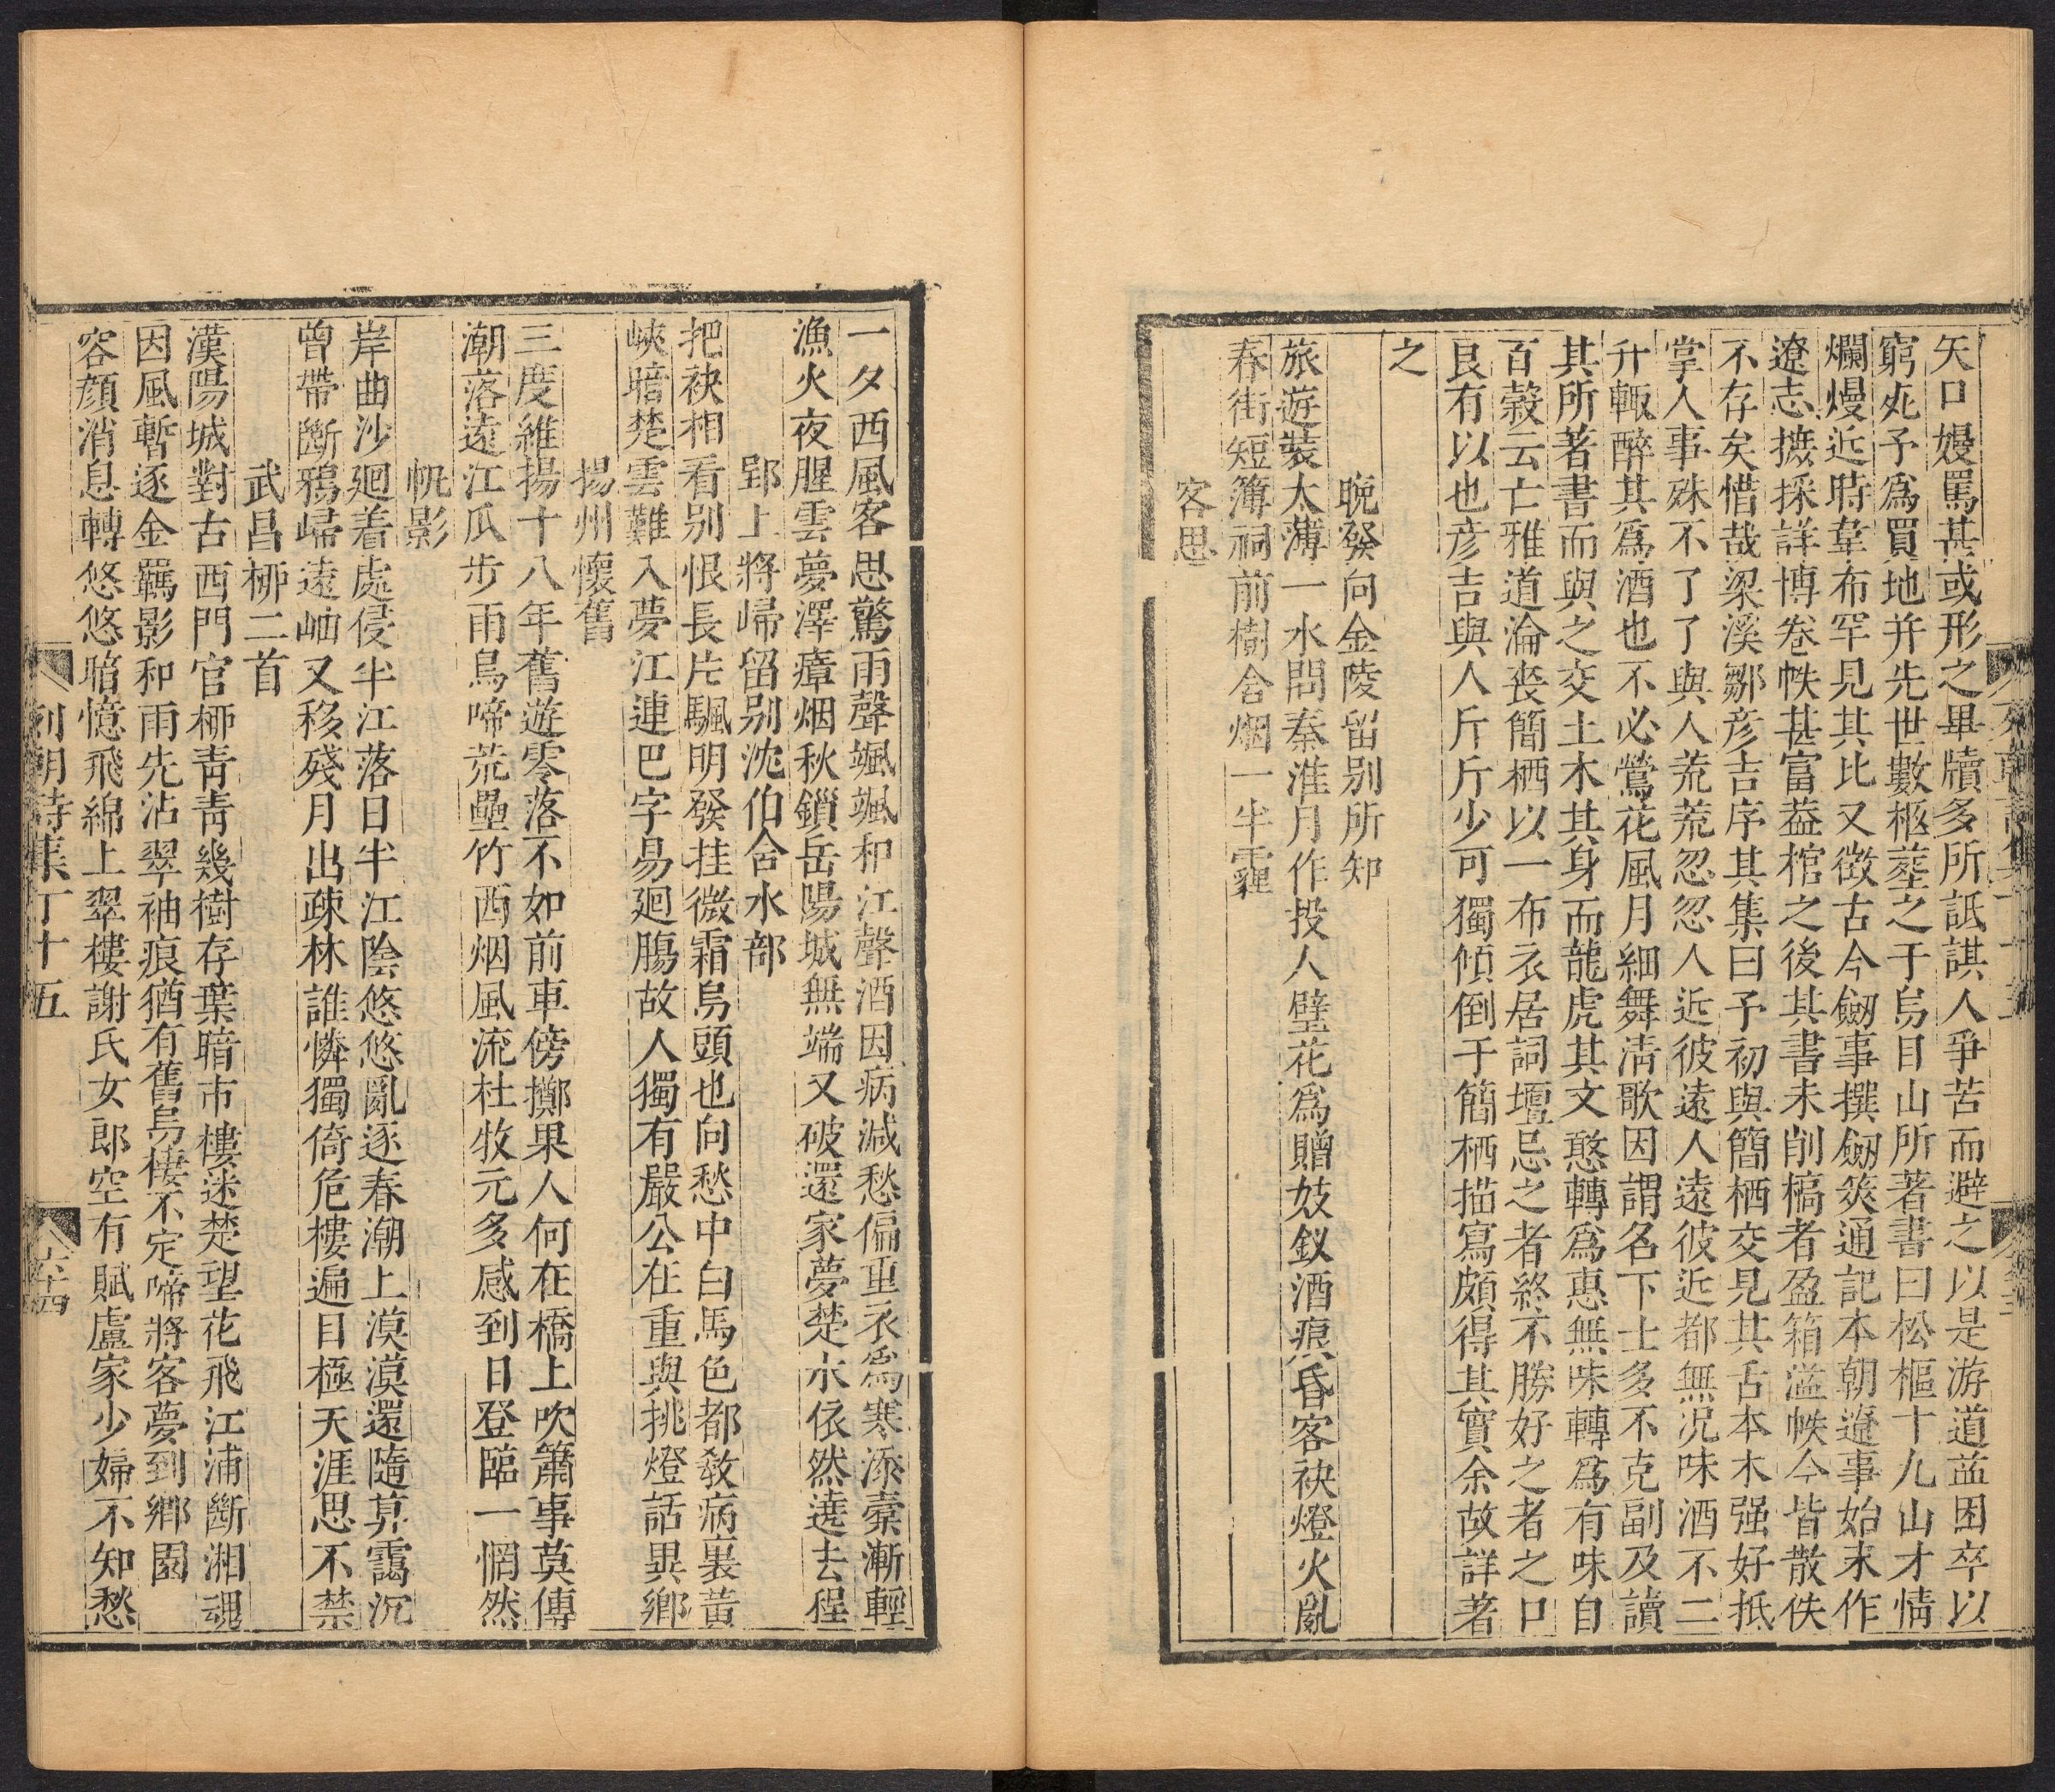 矢口嫚罵甚或形之畢牘多所詆諆人爭苦而避之以是游道益困卒以
窮死予爲買地并先世數柩塟之于烏目山所著書曰松樞十九山才情
爛熳近時韋布罕見其比又徴古今劒事撰劒筴通記本朝遼事始末作
遼志摭採詳博卷帙甚富葢棺之後其書未削槁者盈箱溢帙今皆散佚
不存矣惜哉梁溪鄒彦吉序其集曰予初與簡栖交見其舌本木强好抵
掌人事殊不了了與人荒荒忽忽人近彼遠人遠彼近都無况味酒不二
升輙醉其爲酒也不必鶯花風月細舞清歌因謂名下士多不克副及讀
其所著書而與之交土木其身而龍虎其文憨轉爲惠無味轉爲有味自
百穀云亡雅道淪喪簡栖以一布衣居詞壇忌之者終不勝好之者之口
良有以也彦吉與人斤斤少可獨傾倒于簡栖描寫頗得其實余故詳著
之
晚發向金陵留别所知
旅遊裝太薄一水問秦淮月作投人璧花爲贈妓釵酒痕昏客袂燈火亂
春街短簿祠前樹含烟一半霾
客思
一夕西風客思驚雨聲颯颯和江聲酒因病減愁偏重衣爲寒添橐漸輕
漁火夜腥雲夢澤瘴烟秋鎖岳陽城無端又破還家夢楚水依然遶去程
郢上將歸留别沈伯含水部
把袂相看别恨長片颿明發挂微霜烏頭也向愁中白馬色都敎病裏黃
峽暗楚雲難入夢江連巴字易廻腸故人獨有嚴公在重與挑燈話異鄉
揚州懷舊
三度維揚十八年舊遊零落不如前車傍擲果人何在橋上吹簫事莫傳
潮落遠江瓜步雨鳥啼荒壘竹西烟風流杜牧元多感到日登臨一惘然
帆影
岸曲沙廻着處侵半江落日半江陰悠悠亂逐春潮上漠漠還隨莫靄沉
曾帶斷鴉歸遠岫又移殘月出疎林誰憐獨倚危樓遍目極天涯思不禁
武昌柳二首
漢陽城對古西門官柳靑靑幾樹存葉暗市樓迷楚望花飛江浦斷湘魂
因風暫逐金羈影和雨先沾翠袖痕猶有舊烏棲不定啼將客夢到鄉園
容顏消息轉悠悠暗憶飛綿上翠樓謝氏女郎空有賦盧家少婦不知愁
列朝詩集丁十五
六十四